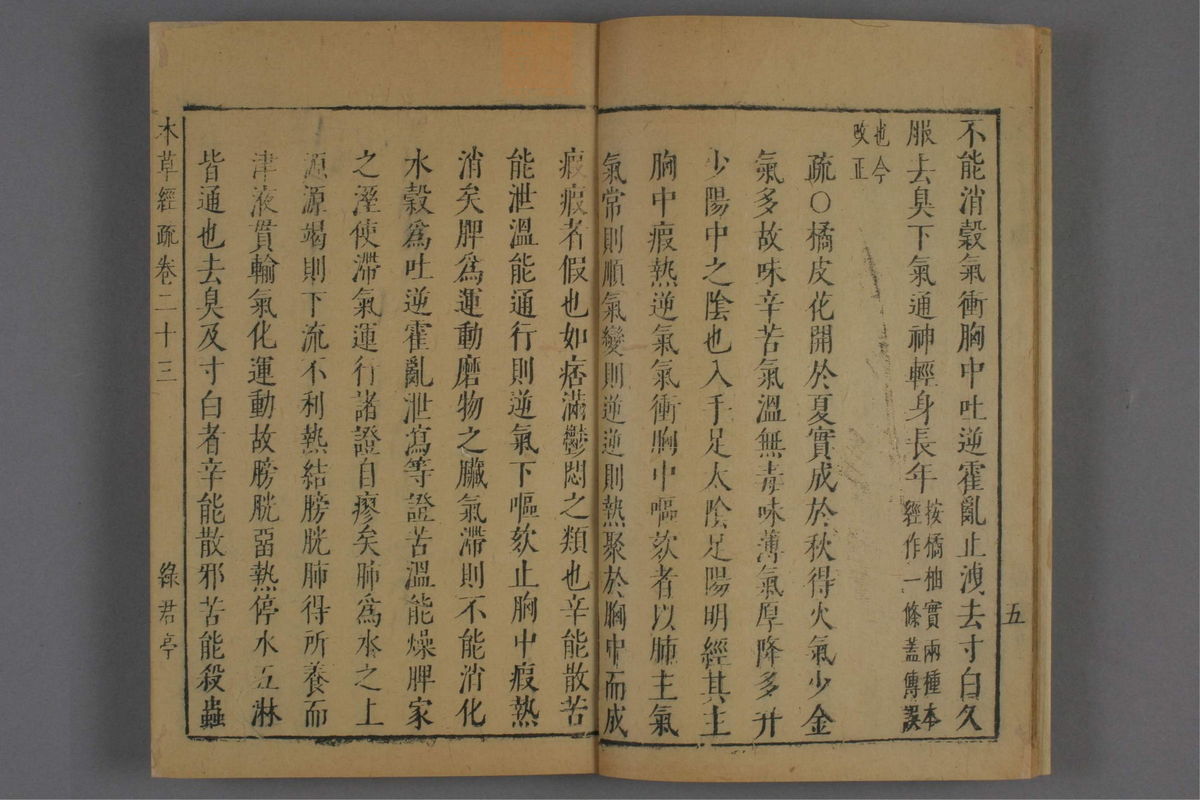 不能消穀氣衝胸中吐逆霍亂止洩去寸白久
服去臭下氣通神輕身長年按橘柚實兩種本
經作一條蓋傳誤
也今
改正
疏○橘皮花開於夏實成於秋得火氣少金
氣多故味辛苦氣溫無毒味薄氣厚降多升
少陽中之陰也入手足太陰足陽明經其主
胸中瘕熱逆氣氣衝胸中嘔欬者以肺主氣
氣常則順氣變則逆逆則熱聚於胸中而成
五
瘕瘕者假也如痞滿鬱悶之類也辛能散苦
能泄溫能通行則逆氣下嘔欬止胸中瘕熱
消矣脾爲運動磨物之臟氣滯則不能消化
水穀爲吐逆霍亂泄瀉等證苦溫能燥脾家
之溼使滯氣運行諸證自瘳矣肺爲水之上
源源竭則下流不利熱結膀胱肺得所養而
津液貫輸氣化運動故膀胱畱熱停水五淋
皆通也去臭及寸白者辛能散邪苦能殺蟲
本草經疏卷二十三
綠君亭